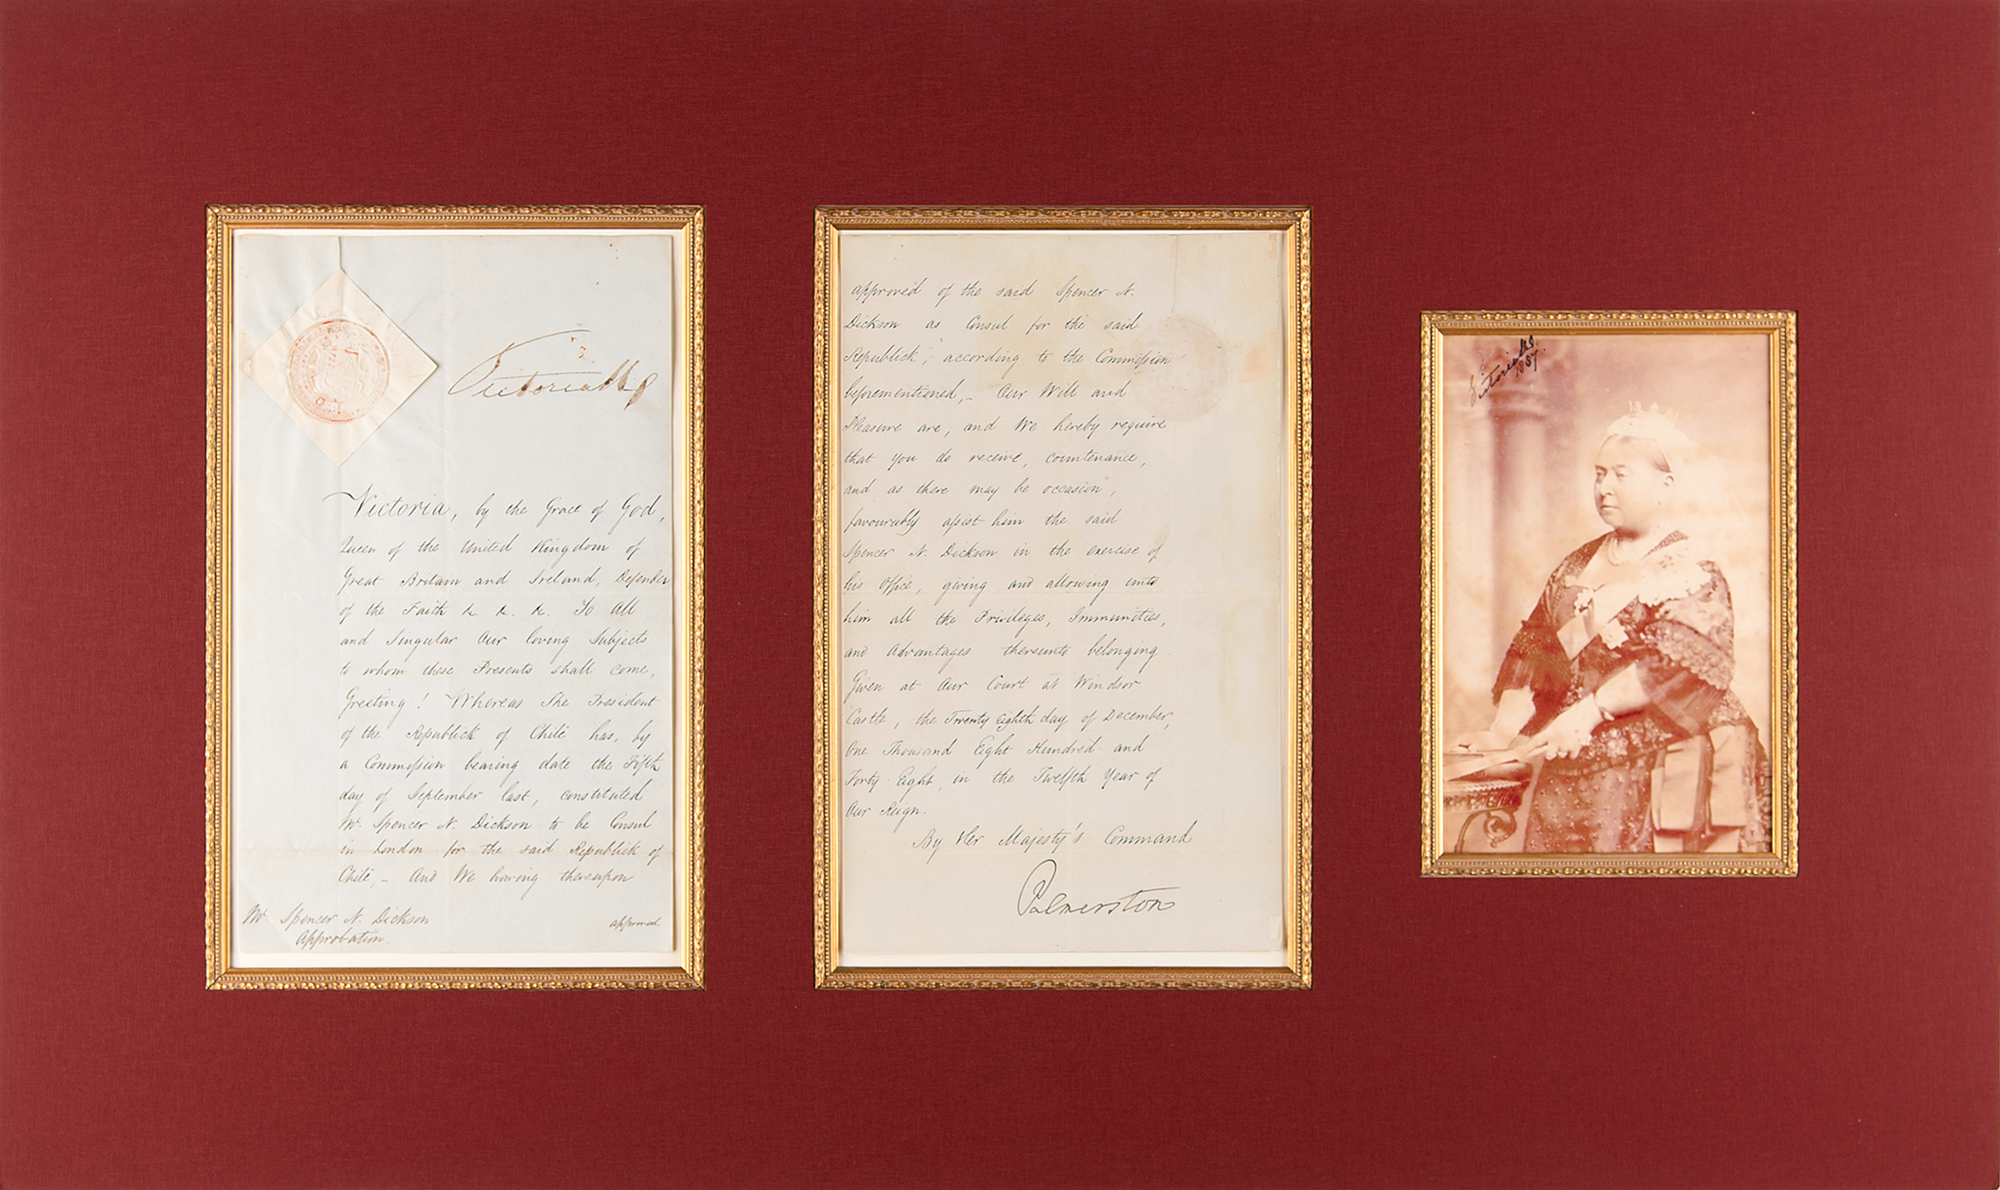 Victoria R
Victoria, by the Grace of God,
Queen of the United Kingdom of
Great Britain and Ireland, Defender
of the Faith &. &. &. To All
and Singular Our loving Subjects
to whom these Presents shall come,
Greeting! Whereas The President
of the Republick of Chilé has, by
a Commission bearing date the Fifth
day of September last, constituted
Mr. Spencer N. Dickson to be Consul
in London for the said Republick of
Chilé,- And We having thereupon
approved
Mr. Spencer N. Dickson
Approbation.
approved of the said Spencer N.
Dickson as Consul for the said
Republick, according to the Commission
beforementioned,- Our Will and
Pleasure are, and We hereby require
that you do receive, countenance,
and as there may be occasion,
favourably assist him the said
Spencer N. Dickson in the exercise of
his Office, giving and allowing unto
him all the Privileges, Immunities,
and Advantages thereunto belonging.
Given at Our Court at Windsor
Castle, the Twenty Eighth day of December,
One Thousand Eight Hundred and
Forty-Eight, in the Twelfth Year of
Our Reign.
By Her Majesty's Command
Palmerston
Victoria R
1887.